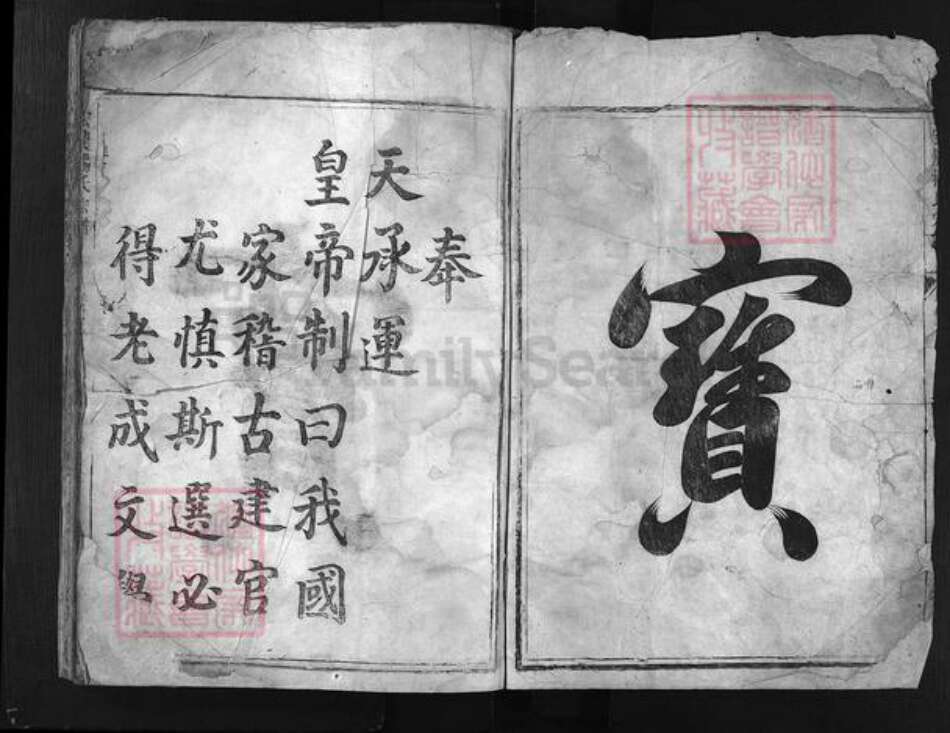 寶
奉
天承運
皇帝制曰我國
家稽古建官
尤慎斯選必
得老成文
FamilySearch